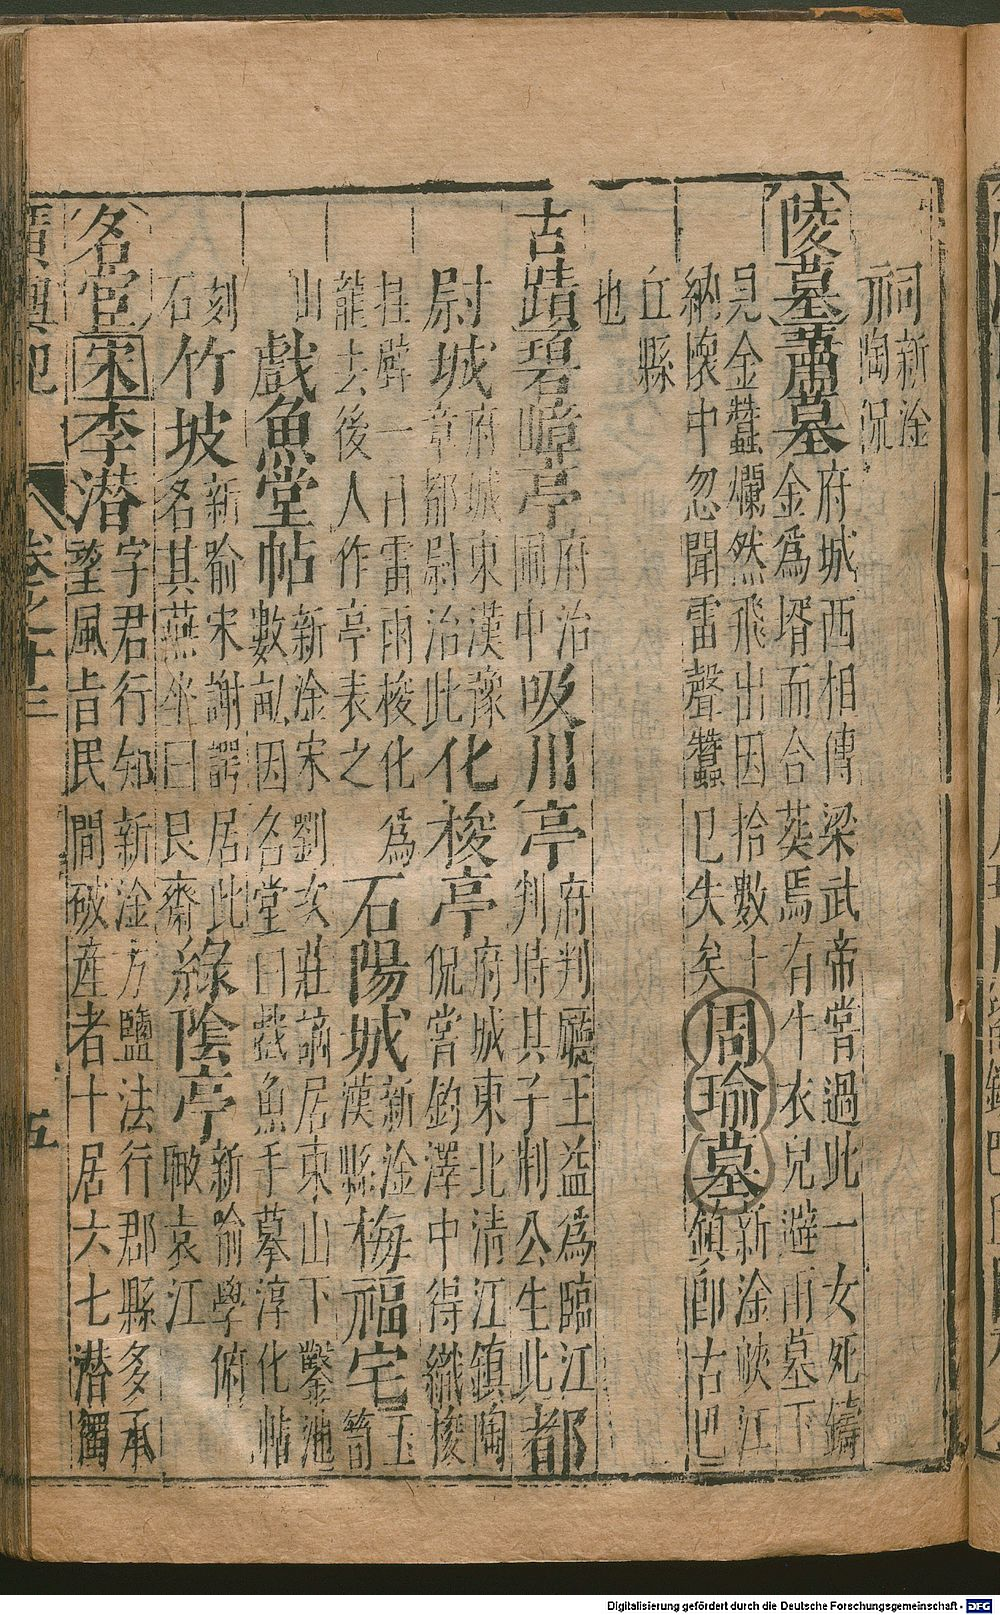 祠新淦
祠陶侃
陵墓蕭墓府城西相傳梁武帝嘗過此一女死鑄
金為壻而合葬焉有牛衣兒避雨墓下
見金蠶爛然飛出因拾數十
納懷中忽聞雷聲蠶已失矣周瑜墓新淦峽江
鎮卽古巴
丘縣
也
古蹟碧嶂亭府治
圃中吸川亭府判廳王益為臨江
判時其子荆公生此都
尉城府城東漢豫
章都尉治此化梭亭府城東北清江鎮陶
侃嘗釣澤中得織梭
挂壁一日雷雨梭化為
龍去後人作亭表之石陽城新淦
漢縣梅福宅玉
笥
山戲魚堂帖新淦宋劉次莊謫居東山下鑿池
數畝因名堂曰戲魚手摹淳化帖
刻
石竹坡新喻宋謝諤居此
名其燕坐曰艮齋綠陰亭新喻學俯
瞰袁江
名宦宋李潜字君行知新淦方鹽法行郡縣多承
望風旨民間破產者十居六七潜獨
廣輿記 卷之十三 五
Digitalisierung gefördert durch die Deutsche Forschungsgemeinschaft - DFG